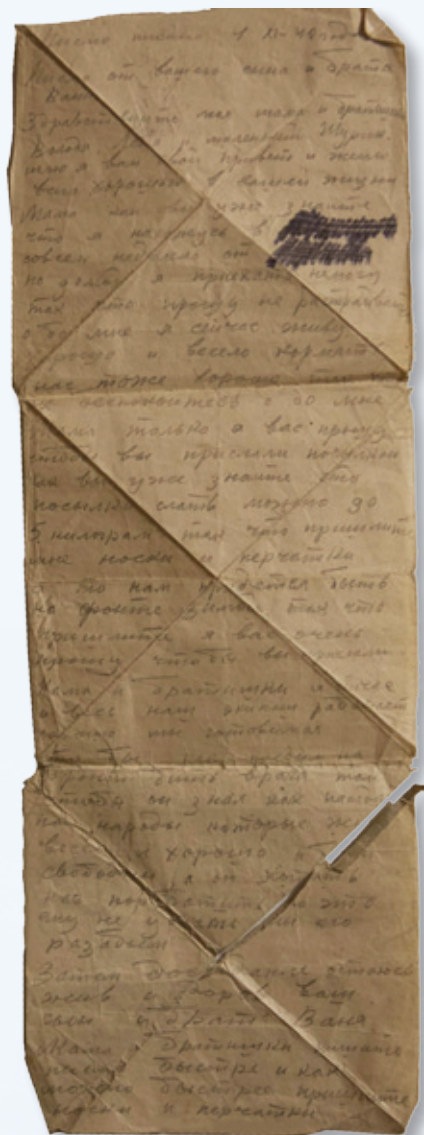 Письмо писано 4 XI-42 года
Письмо от вашего сына и брата
Вани
Здравствуйте моя мама и братишки
Володя маленький Шурик.
шлю я вам свой привет и желаю
вам хорошего в вашей жизни
Мама как вы уже знаете
что я нахожусь в
совсем недалеко от
но домой я приехать немогу
так что прошу не растраивайтесь
обо мне я сейчас живу
хорошо и весело кормят
нас тоже хорошо так что
не беспокойтесь о бо мне
мама только я вас прошу
чтобы вы прислали посылки
как вы уже знаете что
посылки слать можно до
5 килограм так что пришлите
мне носки и перчатки
а то нам придется быть
на фронте зимой так что
пришлите я вас очень
прошу чтобы вы
мама и братишки и
весь наш экипаж работает
мы готовимся
на
фронт бить врага так
чтобы он знал как
народы которые
весело и хорошо и
свободно а он хотит
нас поработить но это
ему не удасться мы его
разобьем
Затем досвидание остаюсь
жив и здоров ваш
сын и брат Ваня
Мама и братишки пишите
письма быстрее и как
можно быстрее пришлите
носки и перчатки